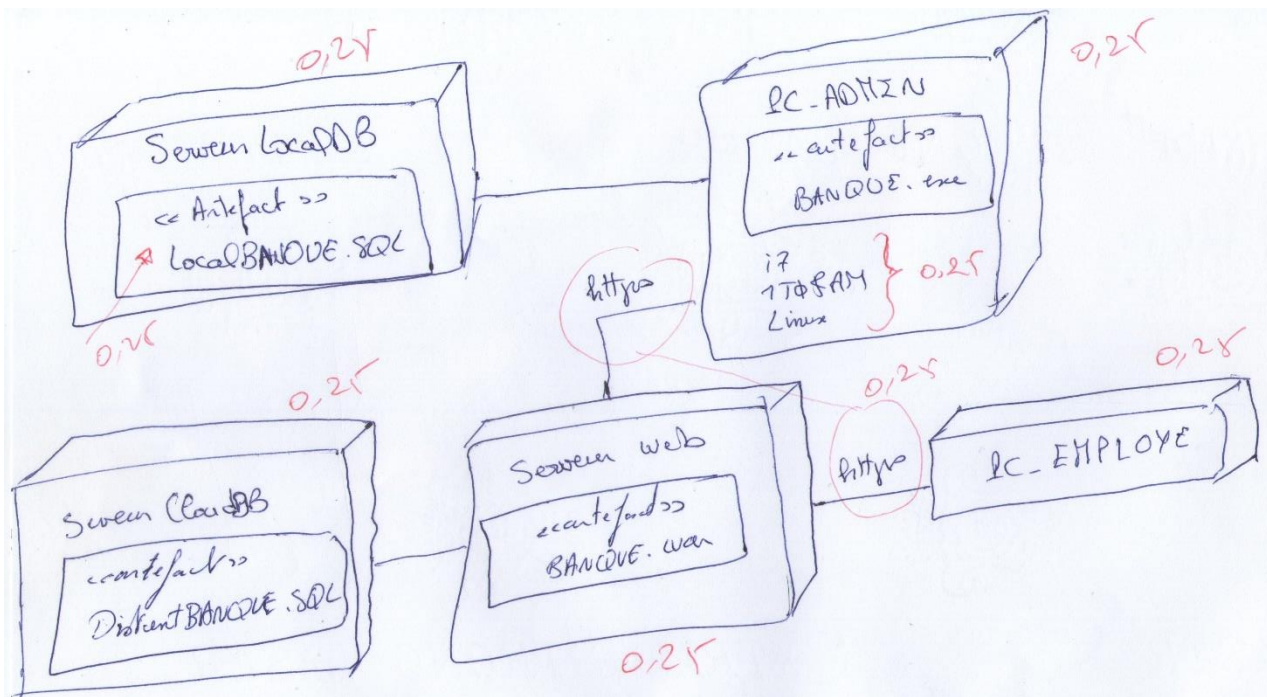 0,25
0,25
Serveur LocalDB
<< Artefact >>
LocalBANQUE.SQL
0,25
PC_ADMIN
<< artefact >>
BANQUE.exe
i7
1To RAM
Linux
0,25
https
0,25
Serveur CloudDB
<<artefact>>
DistantBANQUE.SQL
Serveur web
<<artefact>>
BANQUE.war
0,25
0,25
https
0,25
PC_EMPLOYE